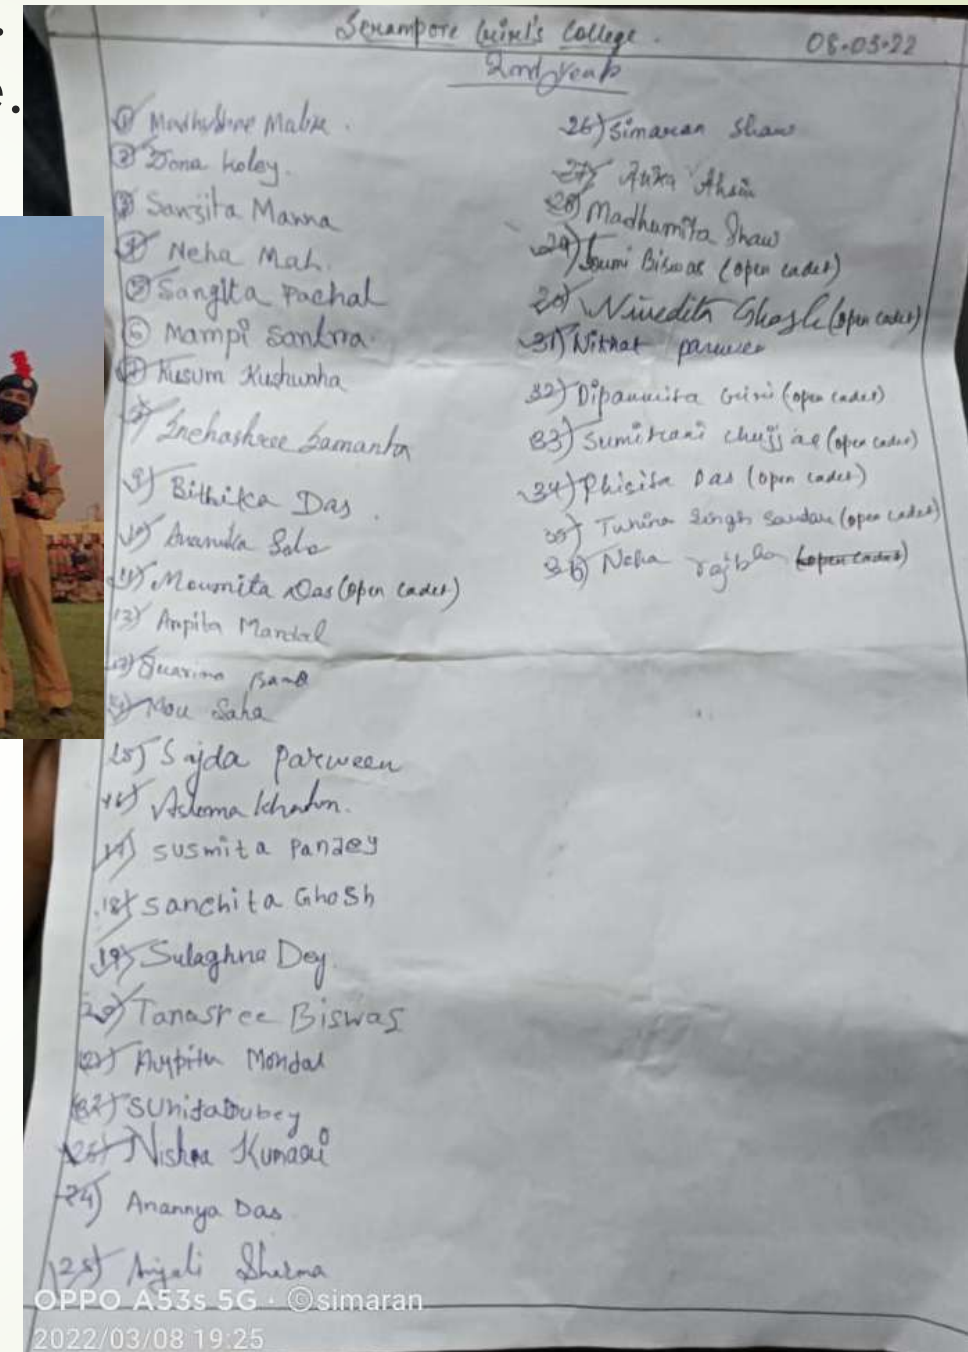 e.
Serampore Girl's College.
08-03-22
2nd year
① Madhushree Malik.
② Dona Koley.
③ Sanjita Manna
④ Neha Mal.
⑤ Sangita Pachal
⑥ Mampi Santra
⑦ Kusum Kushwaha
8) Snehashree Samanta
9) Bithika Das
10) Anamika
11) Moumita Das (open cadet)
13) Arpita Mandal
Bano
Mou Saha
15) Sajda Parween
16) Khatun.
17) Susmita Pandey
18) Sanchita Ghosh
19) Sulaghna Dey.
20) Tanasree Biswas
21) Arpita Mondal
Sunita Dubey
Nisha Kumari
24) Anannya Das
25) Anjali Sharma
26) Simaran Shaw
27)
28) Madhumita Shaw
29) Soumi Biswas (open cadet)
Nivedita Ghosh (open cadet)
31) Nikhat parween
32) Dipannita Giri (open cadet)
33) (open cadet)
34) Das (open cadet)
35) Singh (open cadet)
36) Neha (open cadet)
OPPO A53s 5G · ©simaran
2022/03/08 19:25